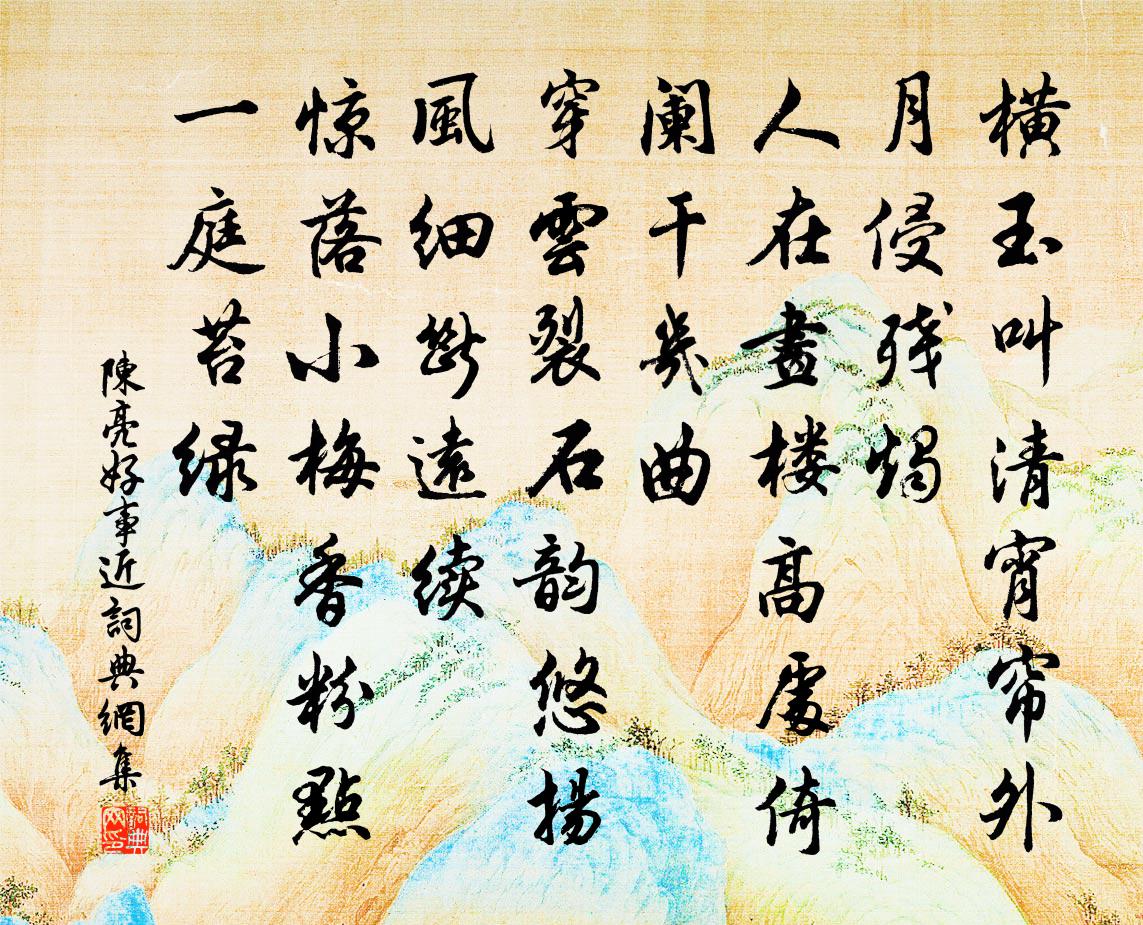 横玉叫清宵帘外
月侵残烛
人在畫楼高處倚
阑干幾曲
穿雲裂石韵悠揚
風细斷遠续
惊落小梅香粉點
一庭苔绿
陳亮好事近詞典網集
詞典网印